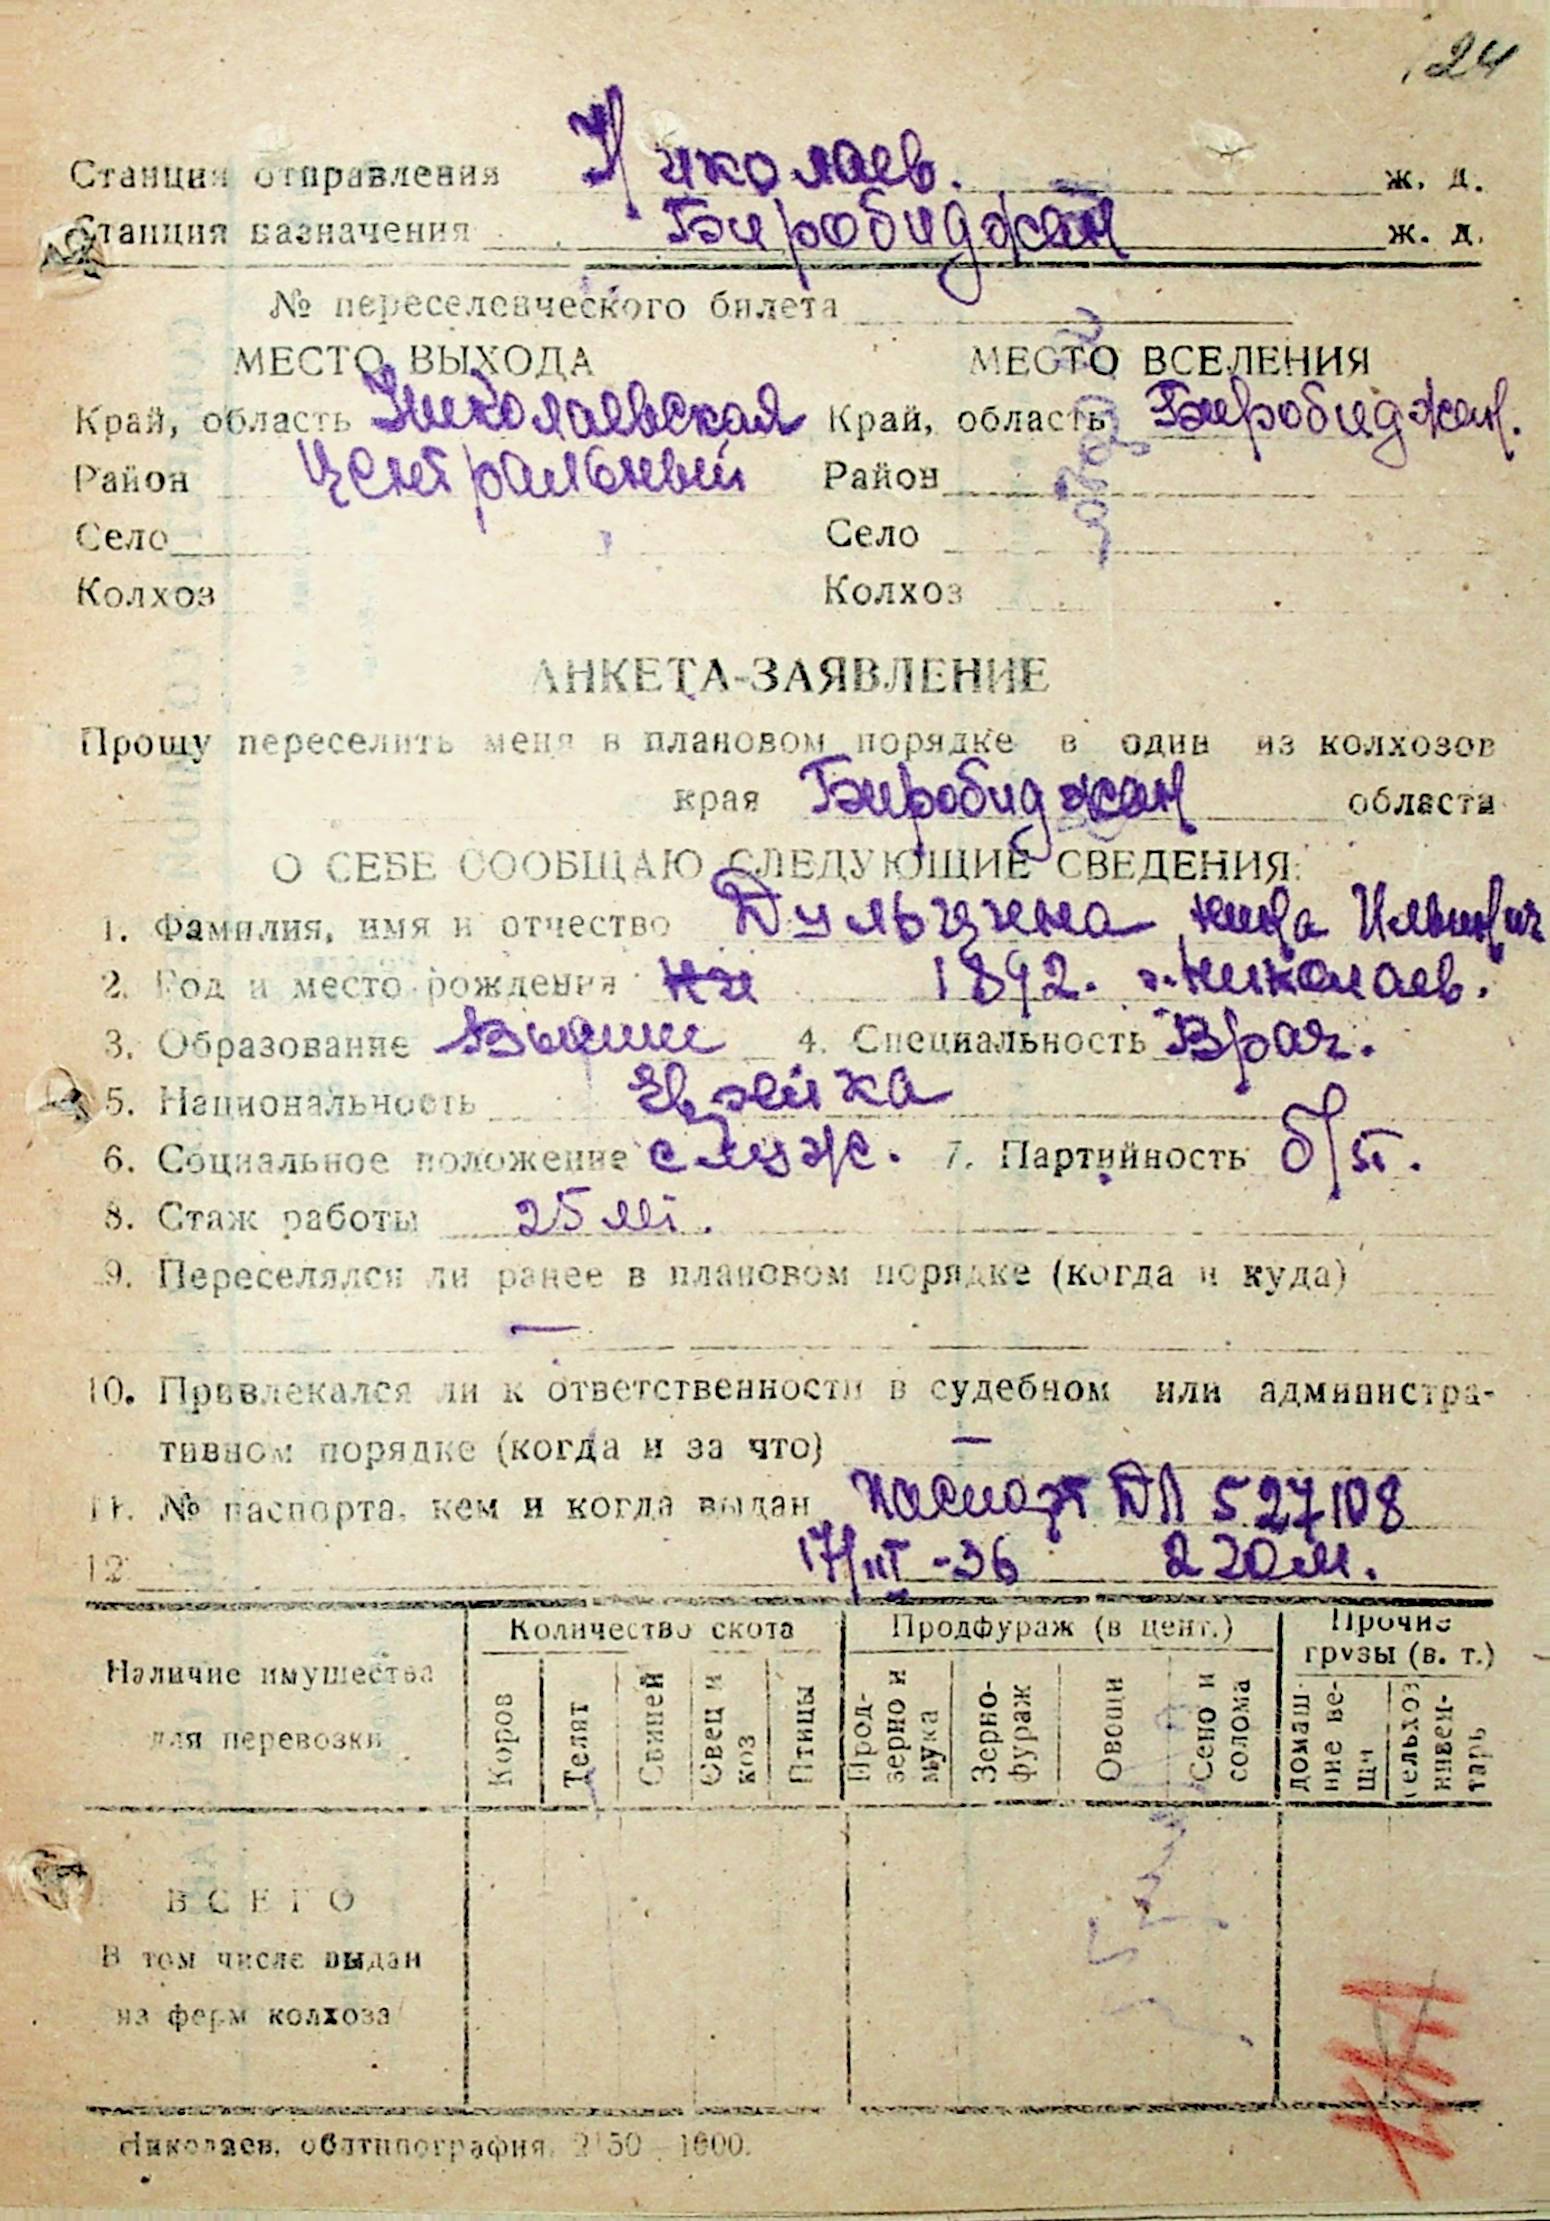 124
Станция отправления Николаев. ж. д.
Станция назначения Биробиджан ж. д.
№ переселенческого билета
МЕСТО ВЫХОДА МЕСТО ВСЕЛЕНИЯ
Край, область Николаевская Край, область Биробиджан.
Район Центральный Район
Село Село
Колхоз Колхоз
АНКЕТА-ЗАЯВЛЕНИЕ
Прошу переселить меня в плановом порядке в один из колхозов
края Биробиджан области
О СЕБЕ СООБЩАЮ СЛЕДУЮЩИЕ СВЕДЕНИЯ:
1. Фамилия, имя и отчество Дульчина
2. Год и место рождения 1892. г. Николаев.
3. Образование Высшее 4. Специальность Врач.
5. Национальность Еврейка
6. Социальное положение служ. 7. Партийность б/п.
8. Стаж работы 25 лет.
9. Переселялся ли ранее в плановом порядке (когда и куда)
—
10. Привлекался ли к ответственности в судебном или администра-
тивном порядке (когда и за что) —
11. № паспорта, кем и когда выдан Паспорт 527108
12. 17/III-36 2 ГОМ.
Наличие имущества для перевозки
Количество скота Продфураж (в цент.) Прочие грузы (в. т.)
Коров Телят Свиней Овец и коз Птицы Прод-зерно и мука Зерно-фураж Овощи Сено и солома домаш-ние ве-щи сельхоз инвен-тарь
ВСЕГО
В том числе выдан
из ферм колхоза
Николаев, облтипография, 2150—1000.